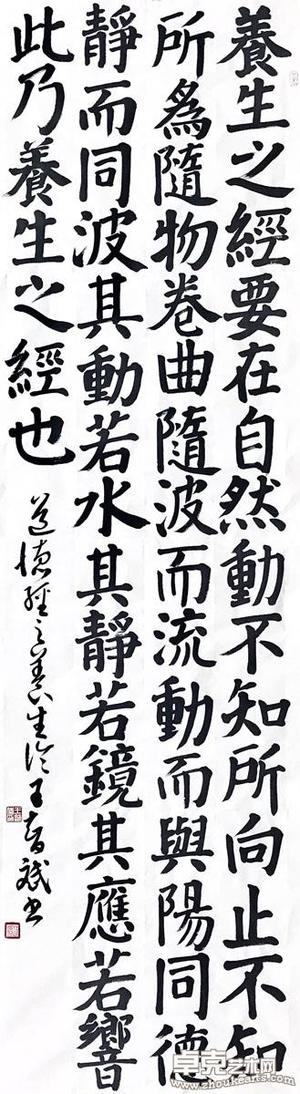 養生之經要在自然動不知所向止不知
所為隨物卷曲隨波而流動而與陽同德
靜而同波其動若水其靜若鏡其應若響
此乃養生之經也
道德經之養生論 王智斌书
卓克艺术网
www.zhoukearts.com